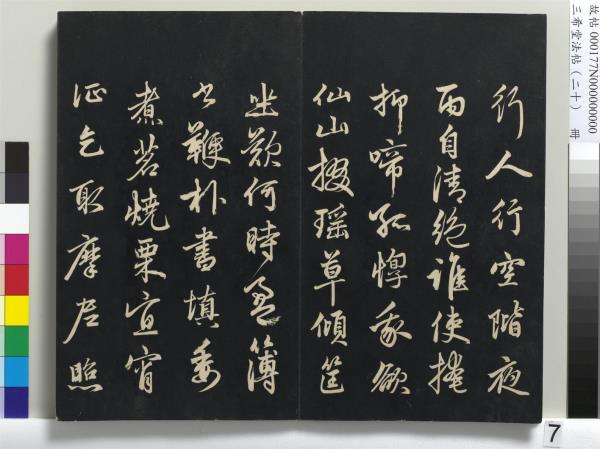 行人行空階夜
雨自清絕誰使掩
抑啼孤惸我欲
仙山掇瑤草傾筐
坐歎何時盈簿
書鞭朴晝填委
煮茗燒栗宜宵
征乞取摩尼照
故帖 000177N000000000
三希堂法帖(二十) 冊
7